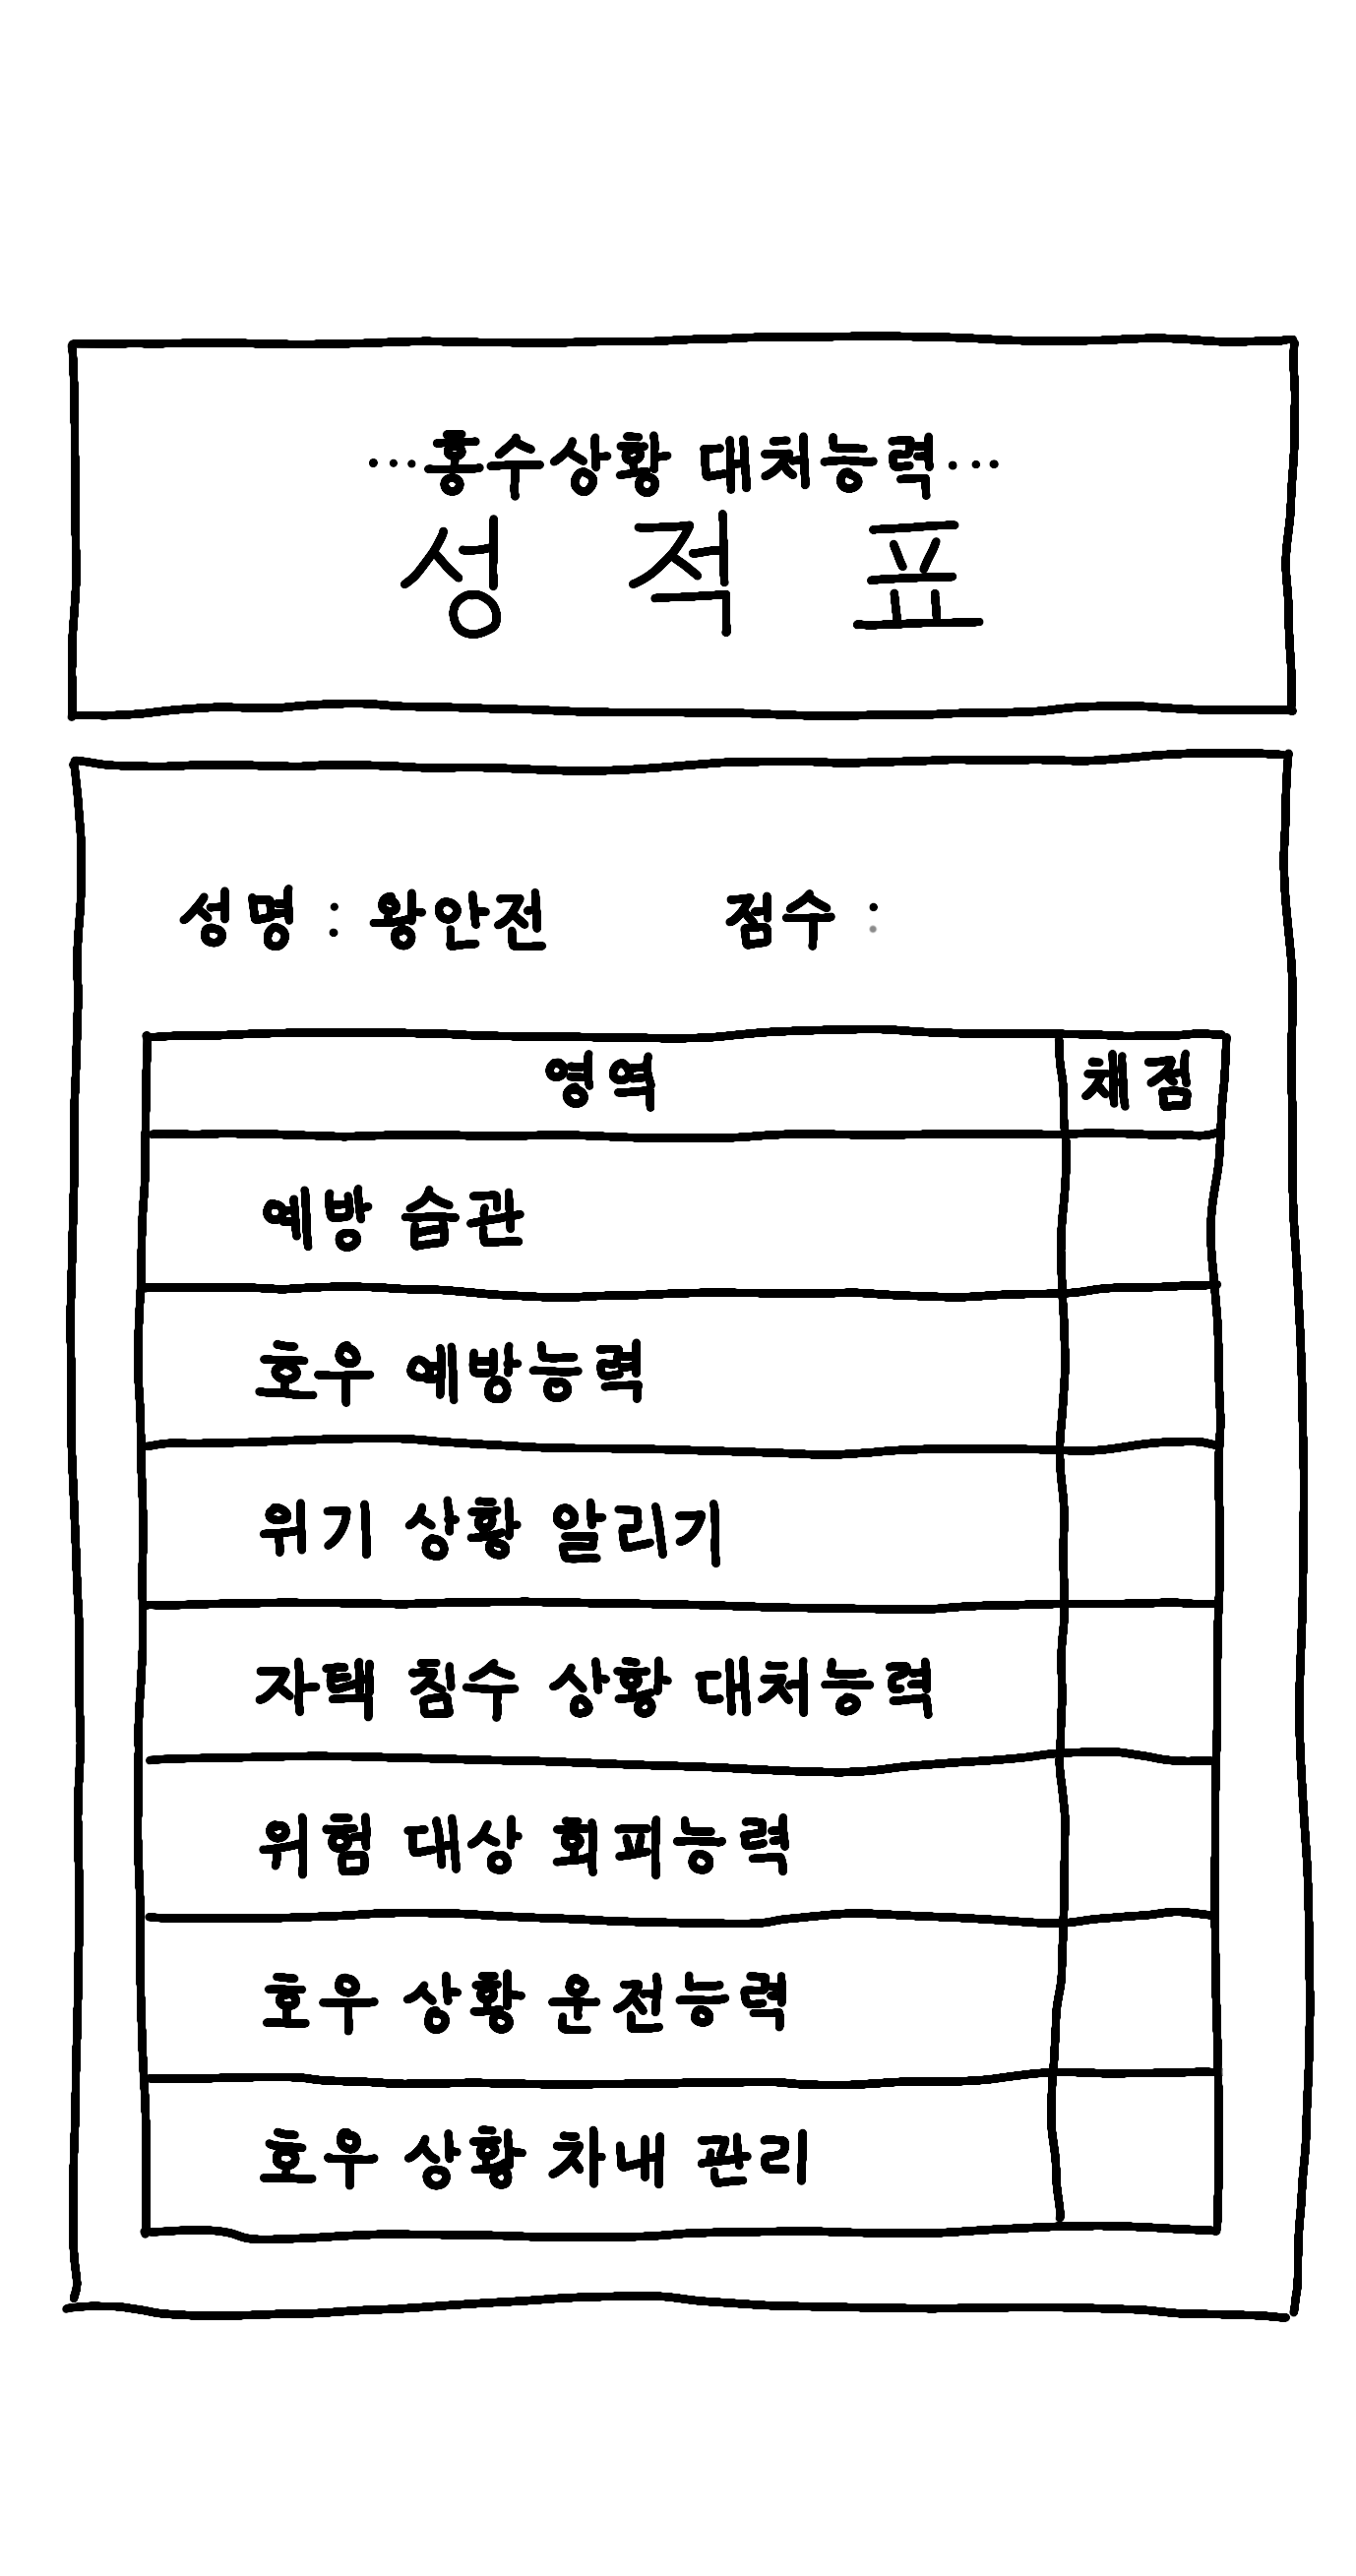 ...홍수상황 대처능력....
성 적 표
성명 : 왕안전 점수 :
영역 채점
예방 습관
호우 예방능력
위기 상황 알리기
자택 침수 상황 대처능력
위험 대상 회피능력
호우 상황 운전능력
호우 상황 차내 관리